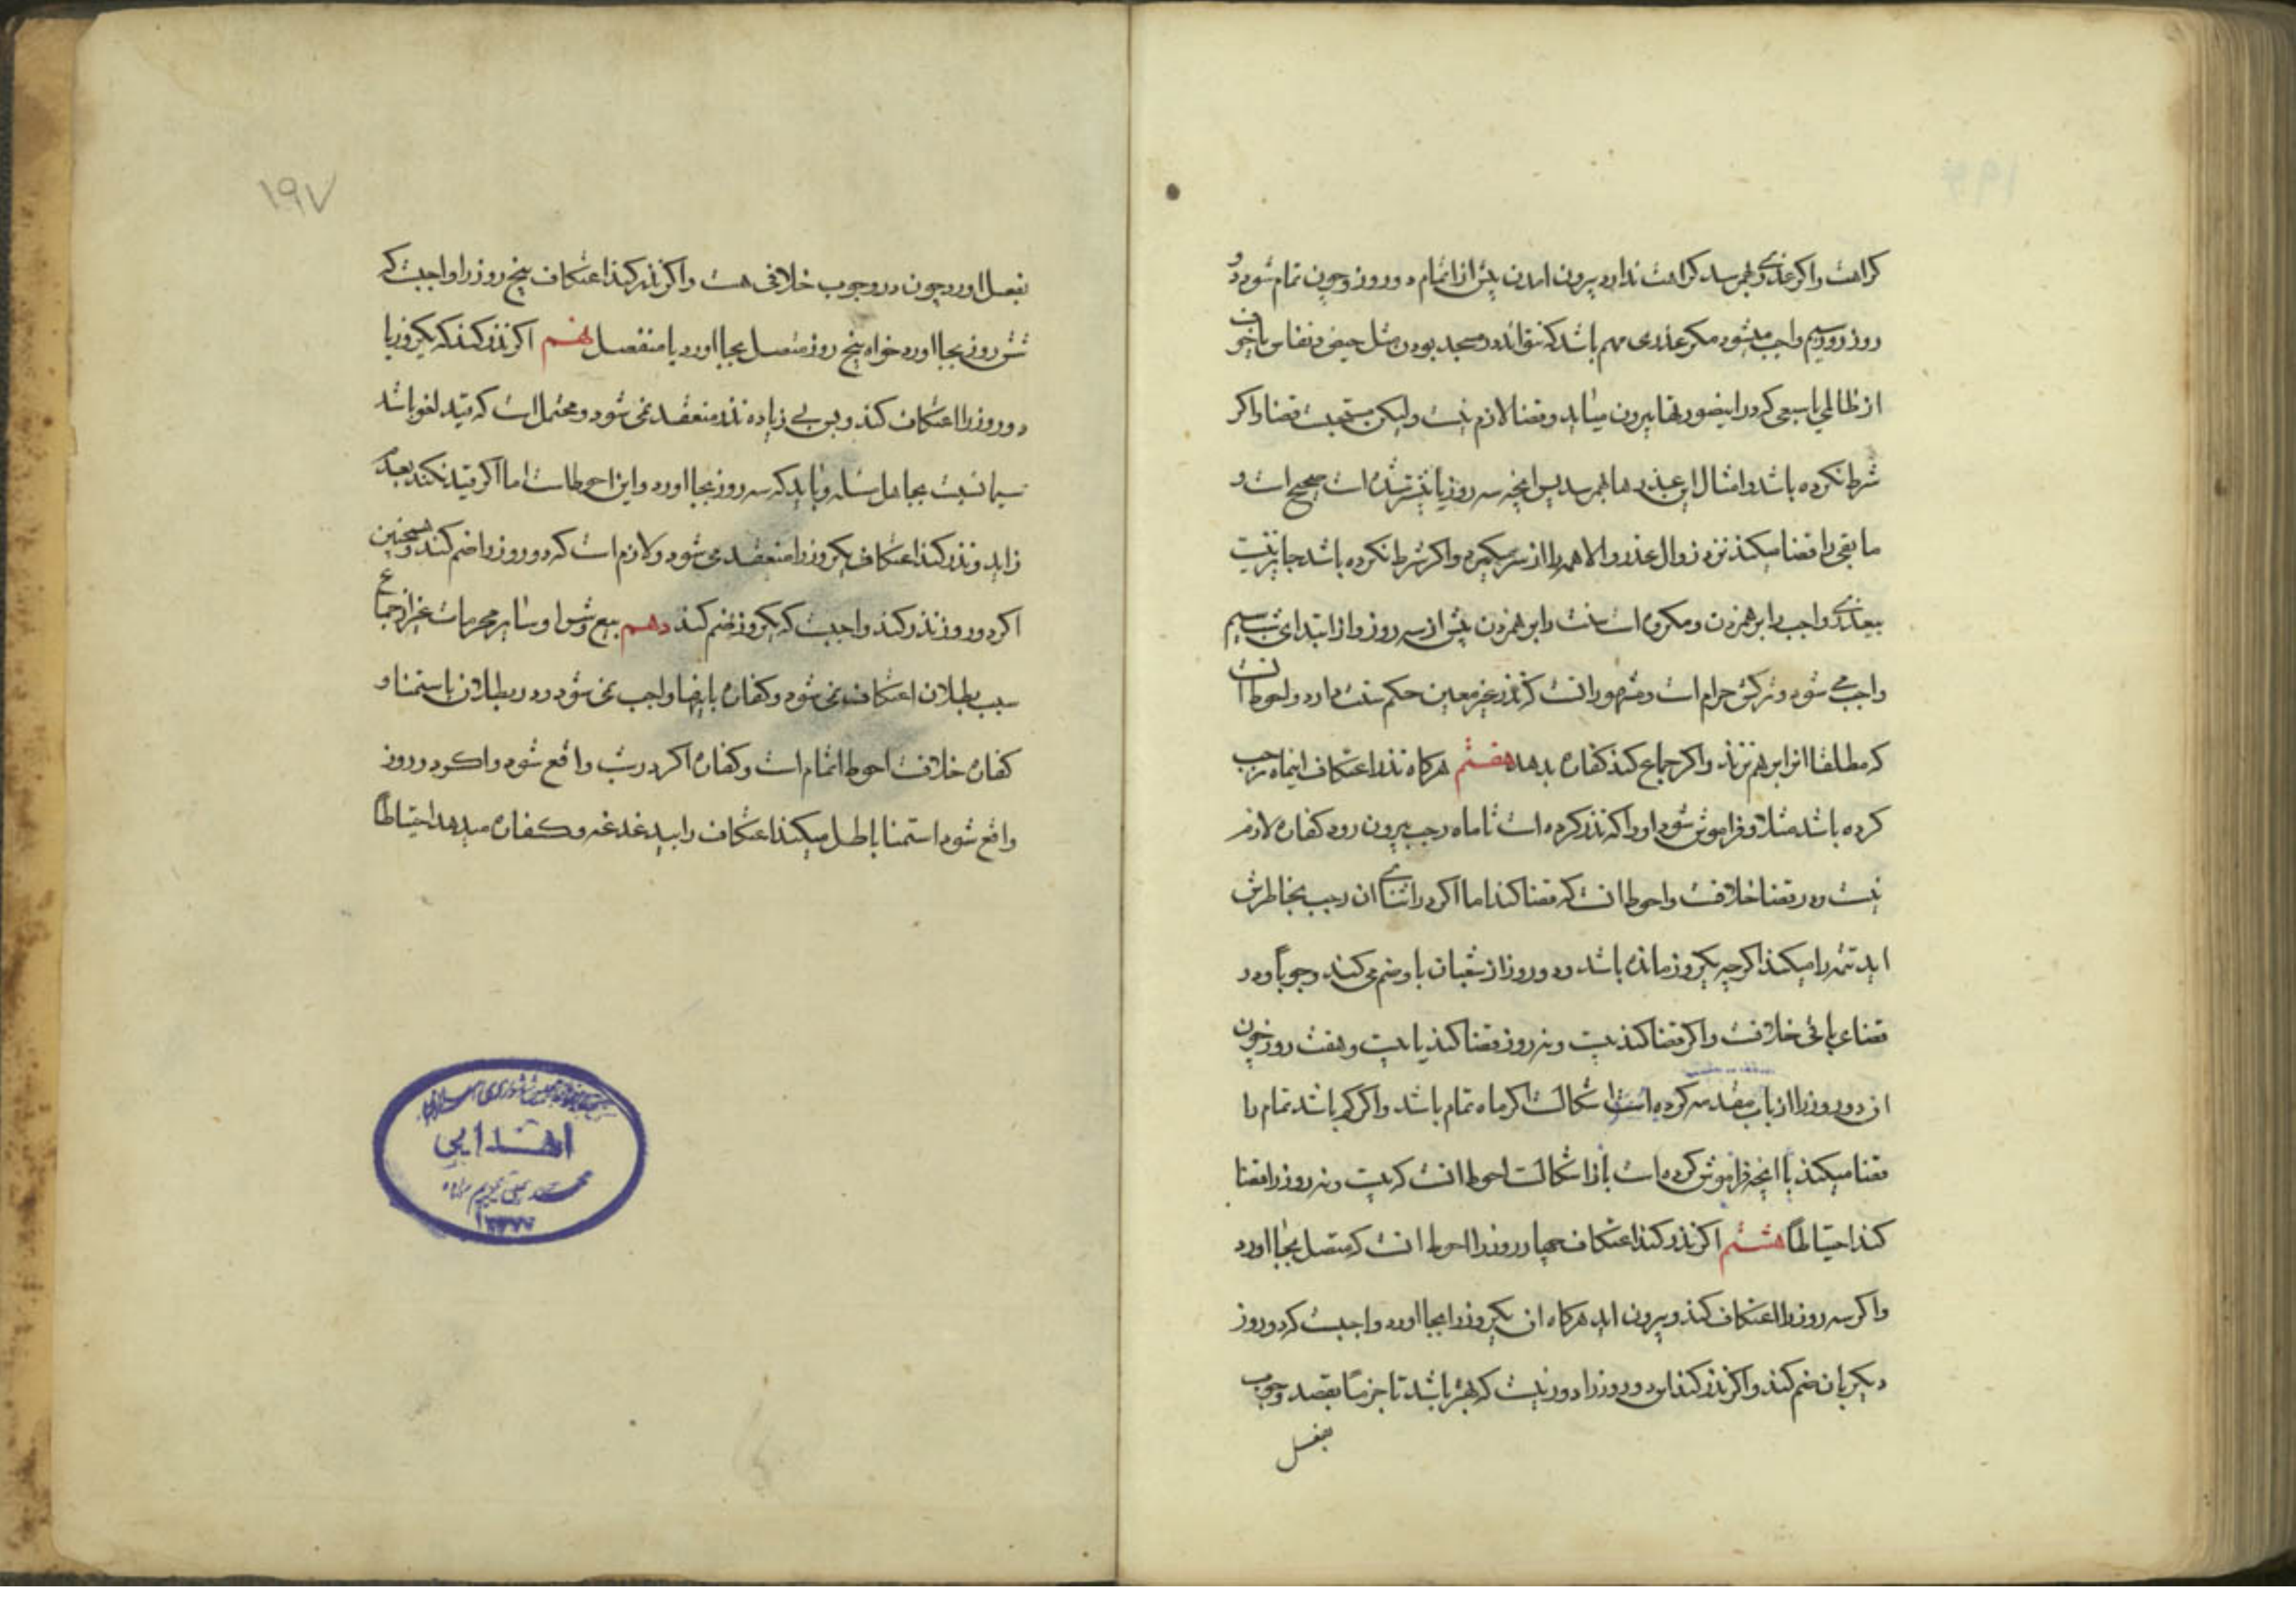 کراهت واکر عذری بهمرسد کراهت ندارد بیرون امدن پیش از اتمام دو روز وچون تمام شود دو
روز روز سیم واجب میشود مکر عذری بهم باشد که نتواند در مسجد بودن مثل حیض ونفاس یا خوف
از ظالمی یا سبعی که در اینصورتها بیرون میاید وقضا لازم نیست ولیکن مستحبست قضا واکر
شرط نکرده باشد وامثال این عذرها بهمرسد پس انچه سه روز یا بیشتر شده است صحیح است و
ما بقی را قضا میکند نزد زوال عذر والا همه را از سر میکیرد واکر شرط نکرده باشد جایز نیست
بعذری واجب را برهم زدن ومکروه است سنت را برهم زدن پیش از سه روز واز ابتدای شب سیم
واجب می شود وترکش حرام است ومشهور انست که نذر غیر معین حکم سنت دارد واحوط انست
که مطلقا انرا برهم نزند واکر جماع کند کفاره بدهد هفتم هرکاه نذر اعتکاف ایام رجب
کرده باشد مثلا وفراموش شود اورا که نذر کرده است تا ماه رجب بیرون رود کفاره لازم
نیست ودر قضا خلافست واحوط انست که قضا کند اما اکر در اثنای ان رجب بخاطرش
اید تتمه را میکند اکرچه یکروز مانده باشد ودو روز از شعبان باو ضم می کند وجوبا ودر
قضای باقی خلافست واکر قضا کند بیست ونه روز قضا کند یا بیست وهفت روز چون
ان دو روز را از باب مقدمه کرده است اشکالست اکر ماه تمام باشد واکر کم باشد تمام را
قضا میکند یا انچه فراموش کرده است باز اشکالست احوط انست که بیست ونه روز را قضا
کند احتیاطا هشتم اکر نذر کند اعتکاف چهار روز را احوط انست که متصل بجا اورد
واکر سه روز را اعتکاف کند وبیرون اید هرکاه ان یکروز را بجا اورد واجبست که دو روز
دیکر بان ضم کند واکر نذر کند دو روز را دور نیست که بهتر باشد تا جزما بقصد وجوب
بفعل
۱۹۷
بفعل اورد چون در وجوب خلافی هست واکر نذر کند اعتکاف پنج روز را واجبست که
شش روز بجا اورد خواه پنج روز متصل بجا اورد یا منفصل نهم اکر نذر کند که یکروز یا
دو روز را اعتکاف کند وبس بی زیاده نذر منعقد نمی شود ومحتمل است که قید لغو باشد
سیما نسبت بجاهل مسئله وباید که سه روز بجا اورد واین احوط است اما اکر قید نکند بعدم
زاید ونذر کند اعتکاف یکروز را منعقد می شود ولازم است که دو روز را ضم کند وهمچنین
اکر دو روز نذر کند واجبست که یکروز ضم کند دهم بیع وشرا وسایر محرمات غیر از جماع
سبب بطلان اعتکاف نمی شود وکفاره باینها واجب نمی شود ودر بطلان باستمنا و
کفاره خلافست احوط اتمام است وکفاره اکر در شب واقع شود واکر در روز
واقع شود استمنا باطل میکند اعتکاف را بیدغدغه وکفاره میدهد احتیاطا
اهدایی